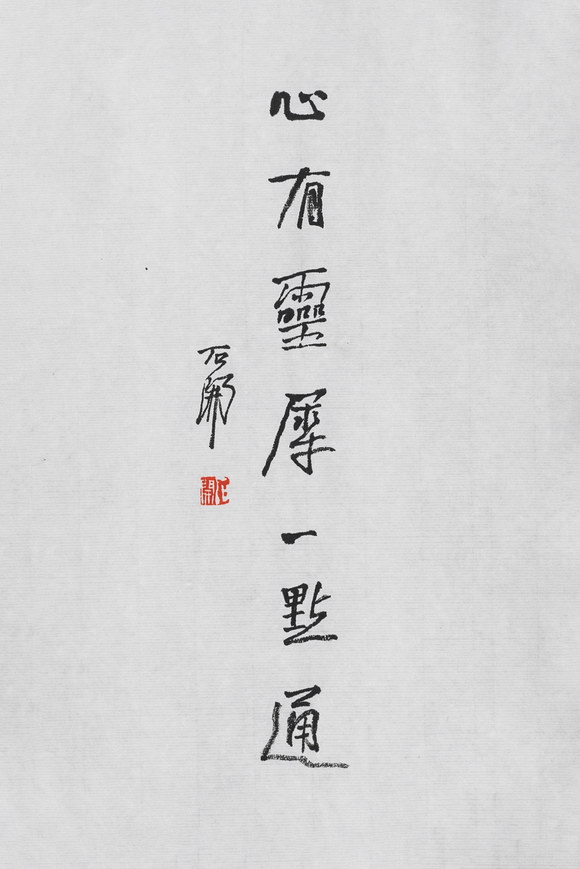 心有靈犀一點通
石開
石開